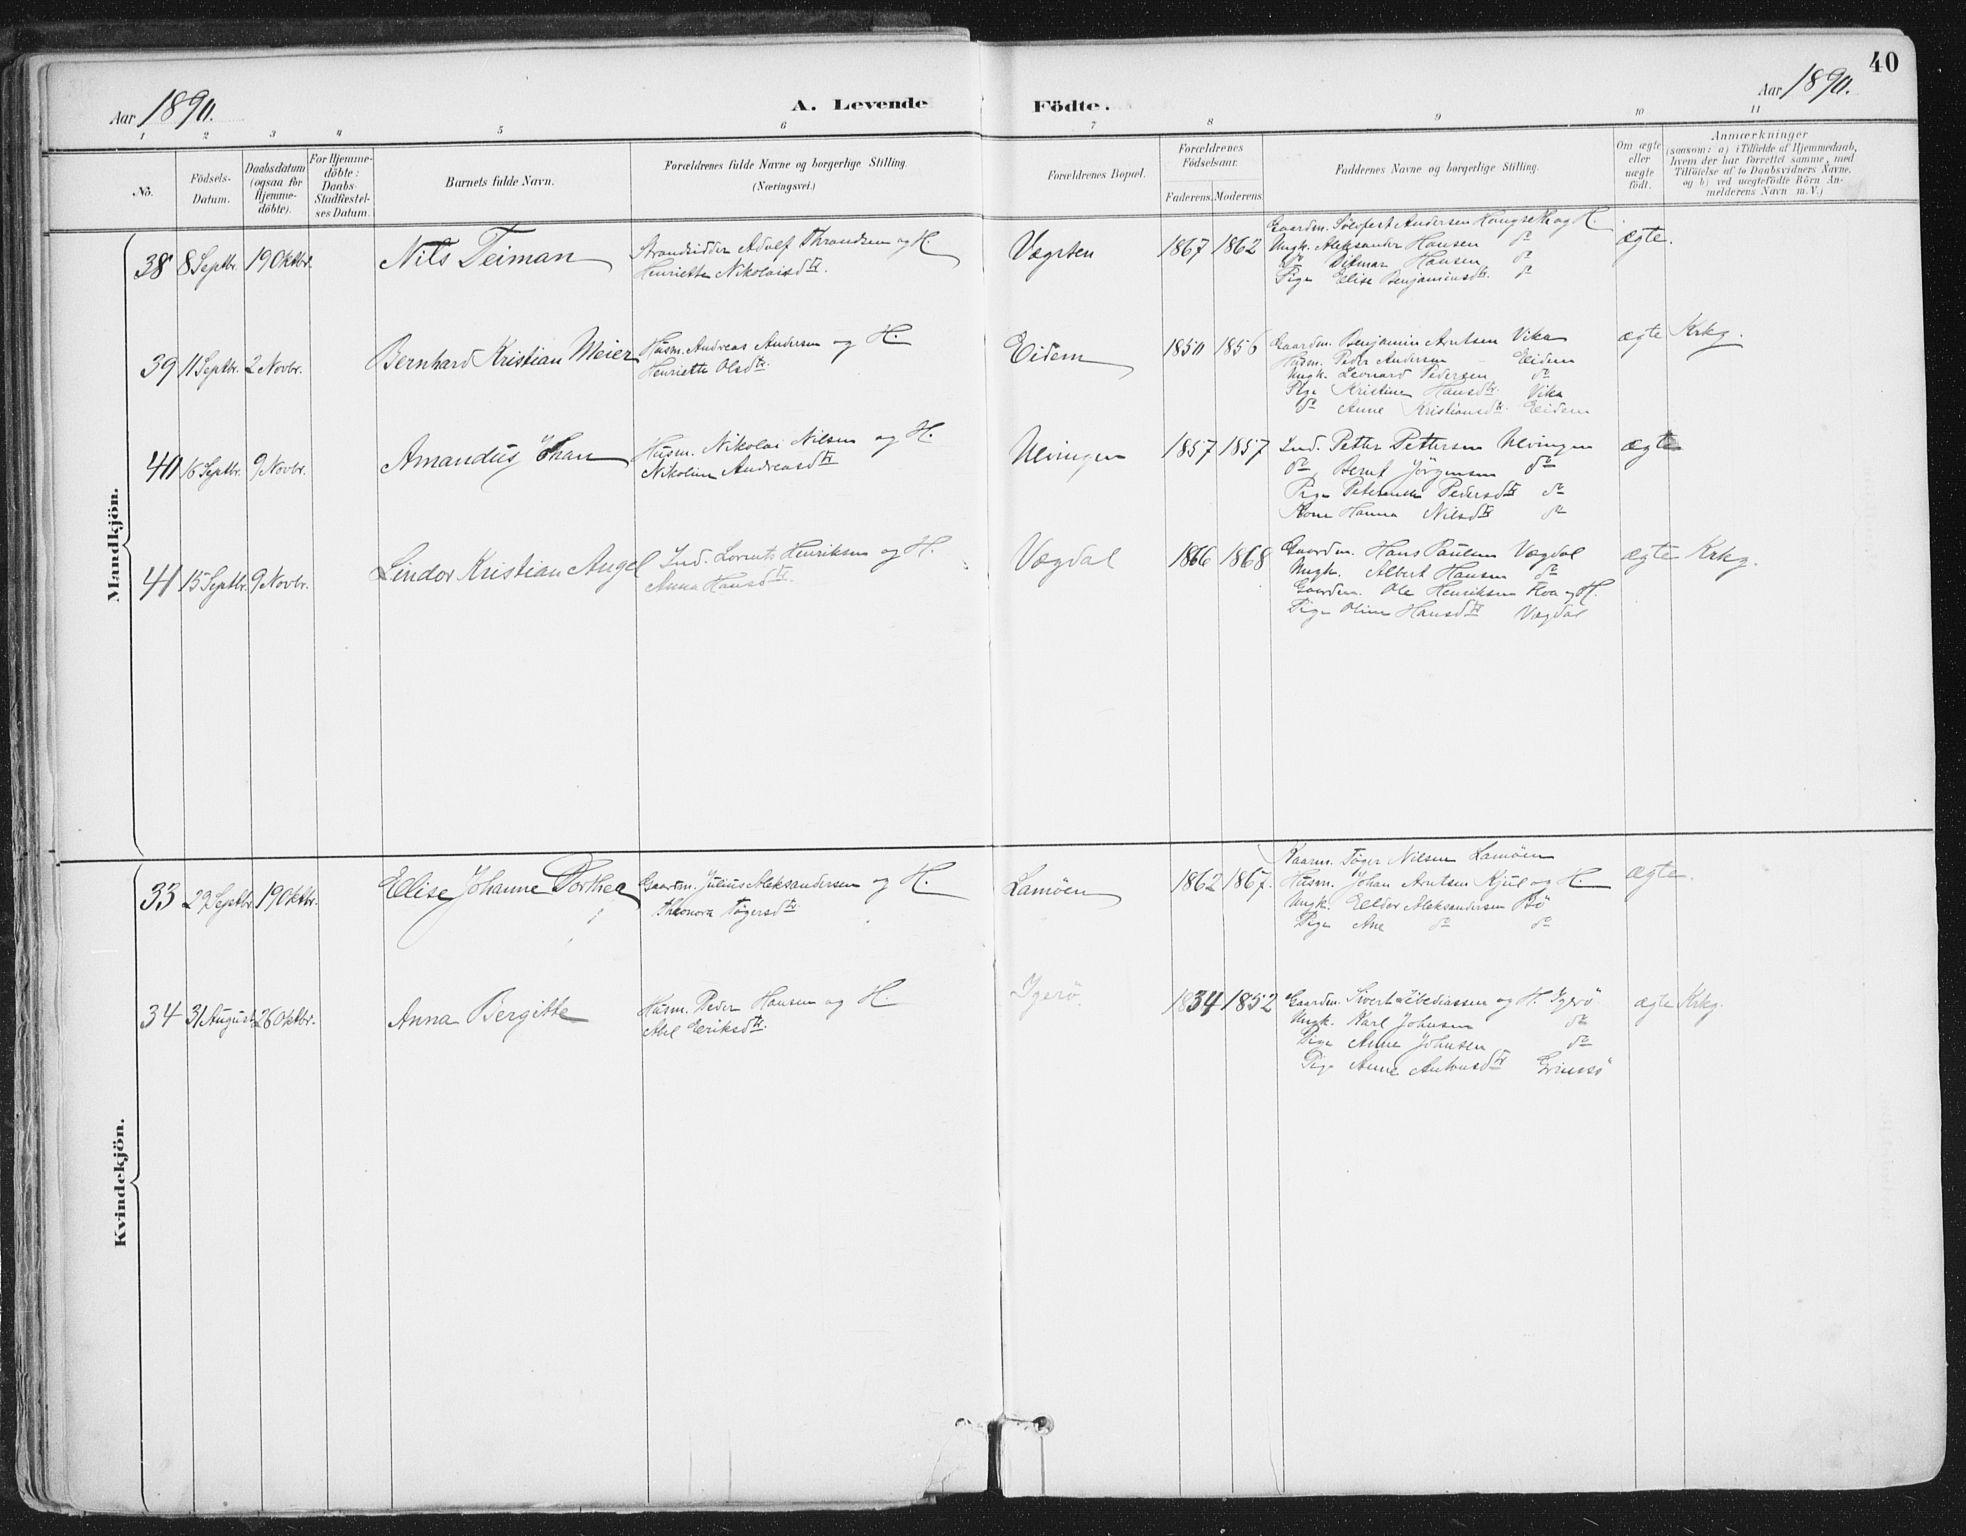 40
Aar 1890. A. Levende Födte. Aar 1890.
1 2 3 4 5 6 7 8 9 10 11
No.
Födsels-
Datum.
Daabsdatum
(ogsaa for
Hjemme-
döbte).
For Hjemme-
döbte:
Daabs-
Stadfæstel-
ses Datum.
Barnets fulde Navn.
Forældrenes fulde Navne og borgerlige Stilling.
(Næringsvei.)
Forældrenes Bopæl.
Forældrenes
Födselsaar.
Faderens. Moderens.
Faddernes Navne og borgerlige Stilling.
Om ægte
eller
uægte
født.
Anmærkninger
(saasom: a) i Tilfælde af Hjemmedaab,
hvem der har forrettet samme, med
Tilföielse af to Daabsvidners Navne,
og b) ved uægtefödte Börn An-
melderens Navn m. V.)
Mandkjön.
38 8 Septbr. 19 Oktbr. Nils Teiman
Strandsidder Adolf Thrandsen og H.
Henriette Nikolaisdtr.
Vægsten 1867 1862
Gaardm. Andersen og H.
Ungk. Aleksander Hansen do
do Ditmar Hansen do
Pige Elise Benjaminsdtr. do
ægte.
39 11 Septbr. 2 Novbr. Bernhard Kristian Meier
Husm. Andreas Andersen og H.
Henriette Olsdtr.
Eidem 1850 1856
Gaardm. Benjamin Arntsen Vika
Husm. Peder Andersen Eidem
Ungk. Leonard Pedersen do
Pige Kristine Hansdtr. Vika
do Anne Kristiansdtr. Eidem
ægte Krkg.
40 16 Septbr. 9 Novbr. Amandus Johan
Husm. Nikolai Nilsen og H.
Nikoline Andreasdtr
Ulvingen 1857 1857
Ind. Petter Pettersen Ulvingen
do Bernt Jörgensen do
Pige Pedersdtr do
Kone Hanna Nilsdtr do
ægte
41 15 Septbr. 9 Novbr. Lindor Kristian Angel
Ind. Lorents Henriksen og H.
Anna Hansdtr.
Vægdal 1866 1868
Gaardm. Hans Paulsen Vægdal
Ungk. Albert Hansen do
Gaardm. Ole Henriksen og H.
Pige Oline Hansdtr Vægdal
ægte Krkg.
Kvindekjön.
33 29 Septbr. 19 Oktbr. Ellise Johanne Dorthea
Gaardm. Julius Aleksandersen og H.
Theonora Tøgersdtr
Lamöen 1862 1867.
Kaarm. Töger Nilsen Lamöen
Husm. Johan Arntsen Kjul og H.
Ungk. Eldor Aleksandersen Bö
Pige Ane do do
ægte.
34 31 August 26 Oktbr. Anna Bergitte
Husm. Peder Hansen og H.
Abel Eriksdtr.
Igerö 1834 1852
Gaardm. Sivert og H. Igerö
Ungk. Karl Johnsen do
Pige Anne Johnsen do
Pige Anne Antonsdtr
ægte Krkg.